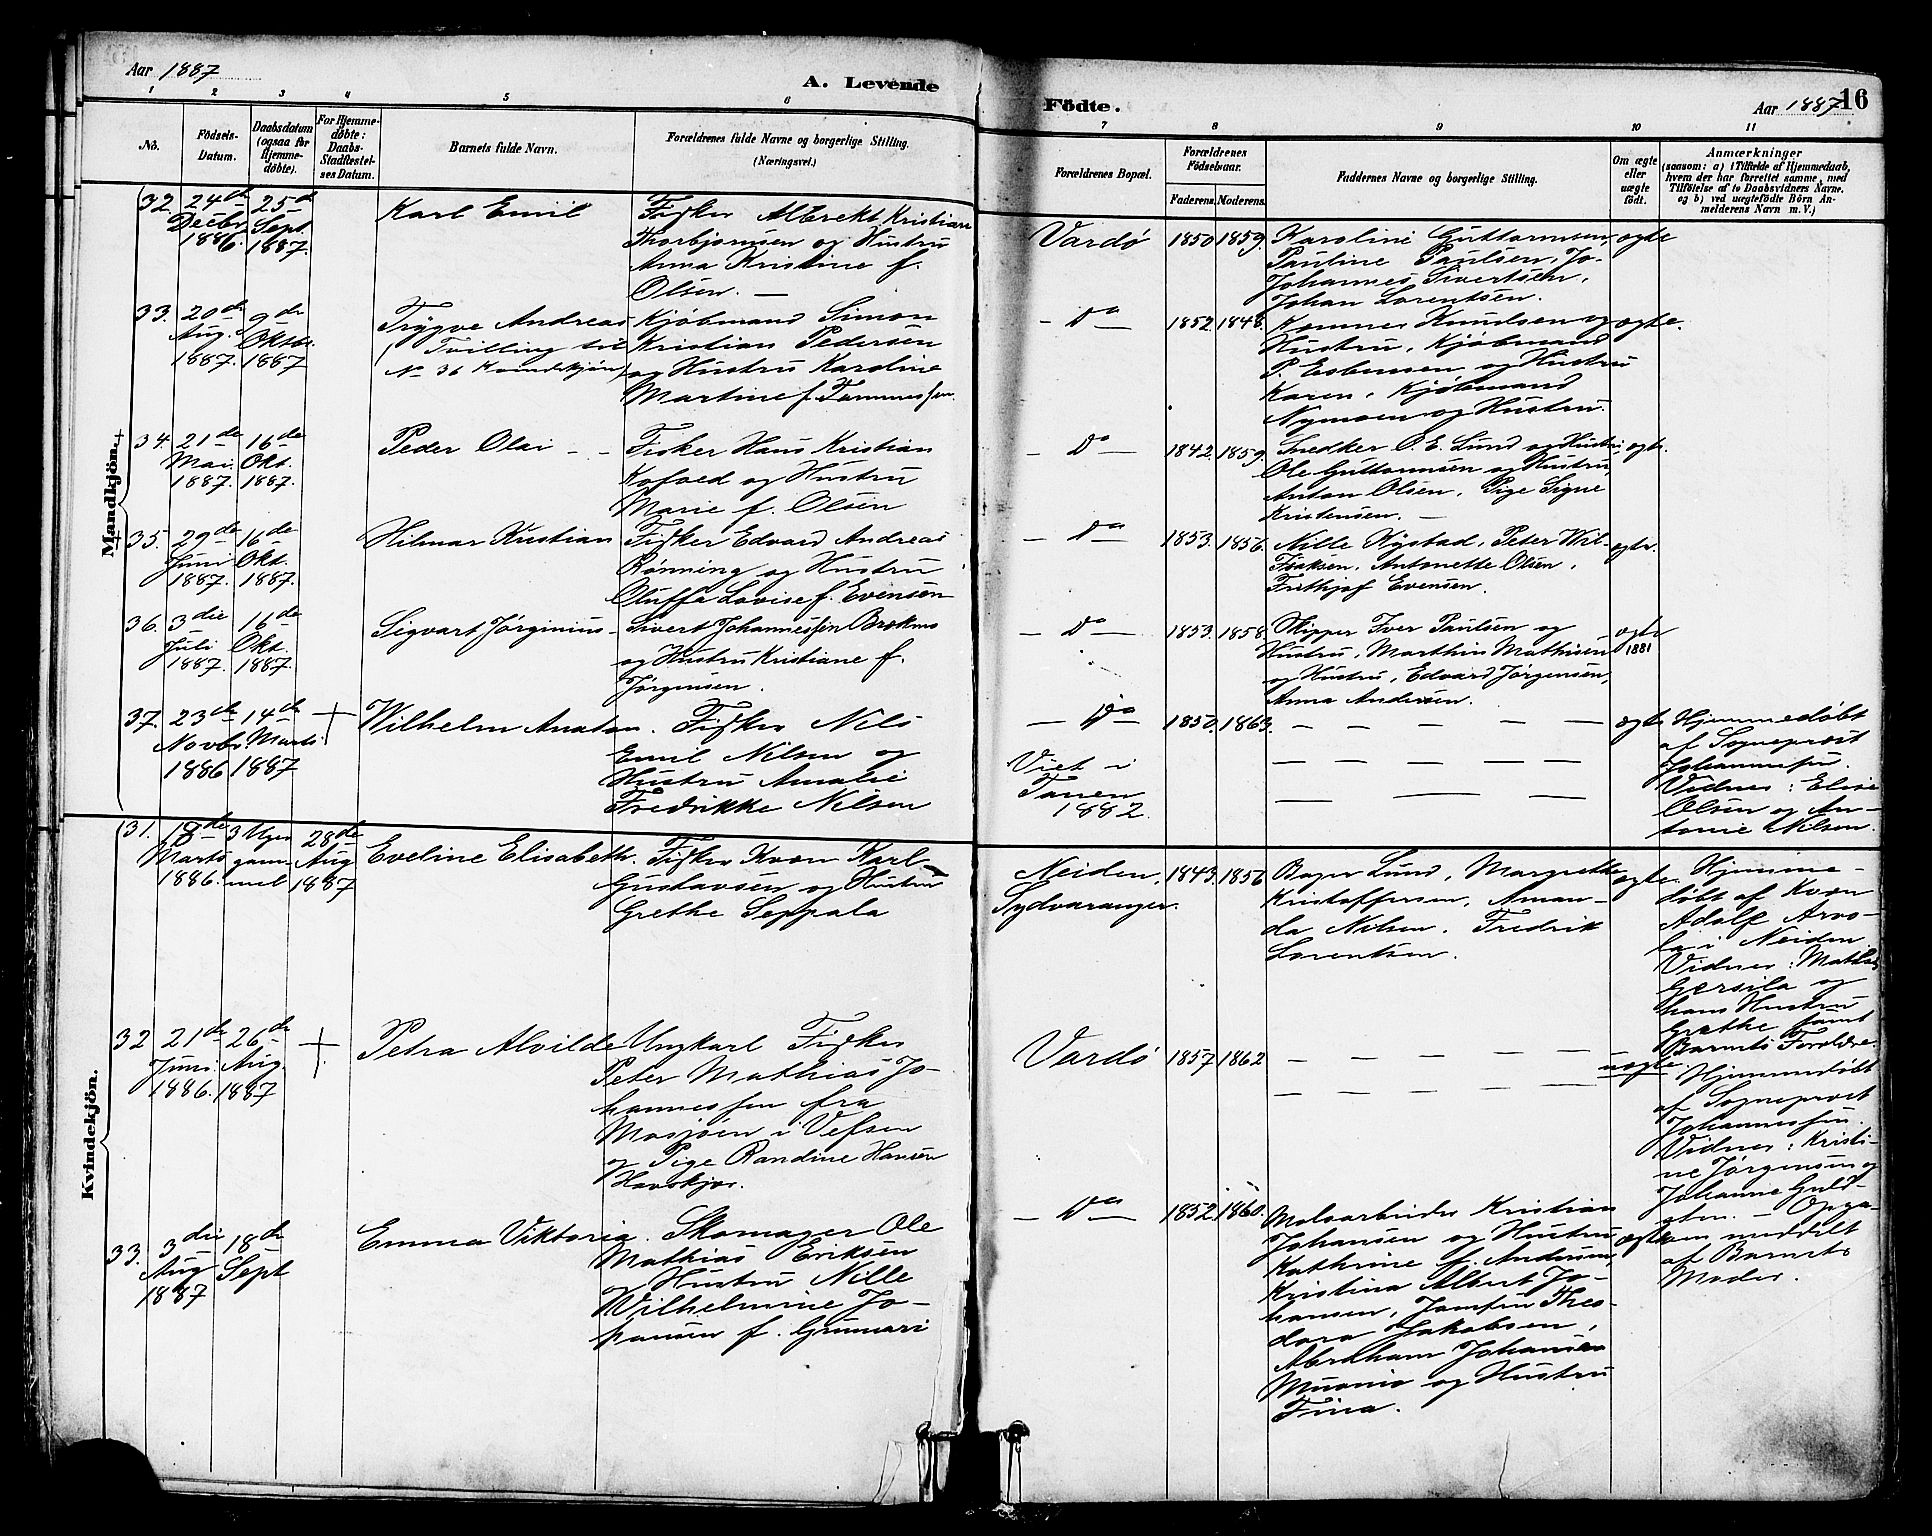 Aar 1887
A. Levende
Födte.
Aar 1887 16
1 2 3 4 5 6 7 8 9 10 11
No.
Födsels-
Datum.
Daabsdatum
(ogsaa for
Hjemme-
döbte).
For Hjemme-
döbte:
Daabs-
Stadfæstel-
ses Datum.
Barnets fulde Navn.
Forældrenes fulde Navne og borgerlige Stilling.
(Næringsvei.)
Forældrenes Bopæl.
Forældrenes
Födselsaar.
Faderens. Moderens.
Faddernes Navne og borgerlige Stilling.
Om ægte
eller
uægte
födt.
Anmærkninger
(saasom: a) i Tilfælde af Hjemmedaab,
hvem der har forrettet samme, med
Tilföielse af to Daabsvidners Navne,
og b) ved uægtefödte Börn An-
melderens Navn m. V.)
Mandkjön.
32
24de
Decbr
1886.
25d
Sept
1887.
Karl Emil
Fisker Albrekt Kristian
Thorbjørnsen og Hustru
Anna Kristine f.
Olsen. —
Vardö
1850 1859.
Karoline Guttormsen,
Pauline Paulsen, Jo-
Johannes Sivertsen,
Johan Lorentsen.
ægte
33.
20de
Aug.
1887.
9de
Oktbr.
1887
Trygve Andreas
(Tvilling til
No 36 Kvindekjön)
Kjöbmand Simon
Kristian Pedersen
og Hustru Karoline
Martine f.
— Do —
1852. 1848.
Knudsen og
Hustru, Kjöbmand
P. Esbensen og Hustru
Karen, Kjöbmand
Nymoen og Hustru.
ægte.
34.
21de
Mai.
1887.
16de
Okt.
1887.
Peder Olai - -
Fisker Hans Kristian
Kofoed og Hustru
Marie f. Olsen
— Do —
1842. 1859.
Snedker O. E. Lund og Hustru,
Ole Guttormsen og Hustru
Anton Olsen, Pige Signe
Kristensen. —
ægte.
35.
29de
Juni
1887.
16de
Okt.
1887.
Hilmar Kristian
Fisker Edvard Andreas
Rønning og Hustru
Oluffa Lovise f. Evensen
— Do —
1853. 1856.
Nille Kystad, Peter Wil-
Isaksen, Antonette Olsen,
Frithjof Evensen.
ægte.
36.
3die
Juli
1887.
16de
Okt.
1887.
Sigvart Jörginius
Sivert Johannessen
og Hustru Kristiane f.
Jörgensen.
— Do —
1853. 1858.
Skipper Iver Paulsen og
Hustru, Marthin Mathisen
og Hustru, Edvard Jörgensen,
Anna Andersen.
ægte
1881
37.
23de
Novbr.
1886
14de
Marts
1887
+
Wilhelm Anatan.
Fisker Nils
Emil Nilsen og
Hustru Amalie
Fredrikke Nilsen
— Do —
Viet i
Tanen
1882.
1850. 1863.
ægte
Hjemmedöbt
af Sogneprest
Johannessen.
Vidner: Elise
Olsen og An-
tonie Nilsen.
Kvindekjön.
31.
18de
Marts
1886.
3 Uger
gam-
mel
28de
Aug
1887
Eveline Elisabeth.
Fisker Kvæn Karl
Gustavsen og Hustru
Grethe Seppala
Neiden,
Sydvaranger.
1843. 1856
Bager Lund, Margrethe
Kristoffersen, Aman-
da Nilsen. Fredrik
Lorentsen.
ægte.
Hjemme-
döbt af Kvæn
Adolf Arvo-
la i Neiden
Vidner: Mathis
og
hans Hustru
Grethe samt
Barnets Forældre.
32
21de
Juni
1886.
26de
Aug.
1887
+
Petra Alvilde
Ungkarl Fisker
Peter Mathias Jo-
hannessen fra
Mosjöen i Vefsen
og Pige Randine Hansen
Havskjær.
Vardö
1857 1862
uægte.
Hjemmedöbt
af Sogneprest
Johannessen.
Vidner: Kristi-
ne Jörgensen og
Johanna Guld-
agten. — Opga-
ven meddelt
af Barnets
Moder.
33.
3die
Aug
1887
18de
Sept
Emma Viktoria.
Skomager Ole
Mathias Eriksen
og Hustru Nille
Wilhelmine Jo-
hansen f. Grunnari
— Do —
1852. 1860.
Malsarbeider Kristian
Johansen og Hustru
Kathrine f. Andersen,
Kristina Albert Jo-
hansen, Jomfru Theo-
dora Jakobsen,
Abraham Johansen
Muonio og Hustru
Fina.
ægte